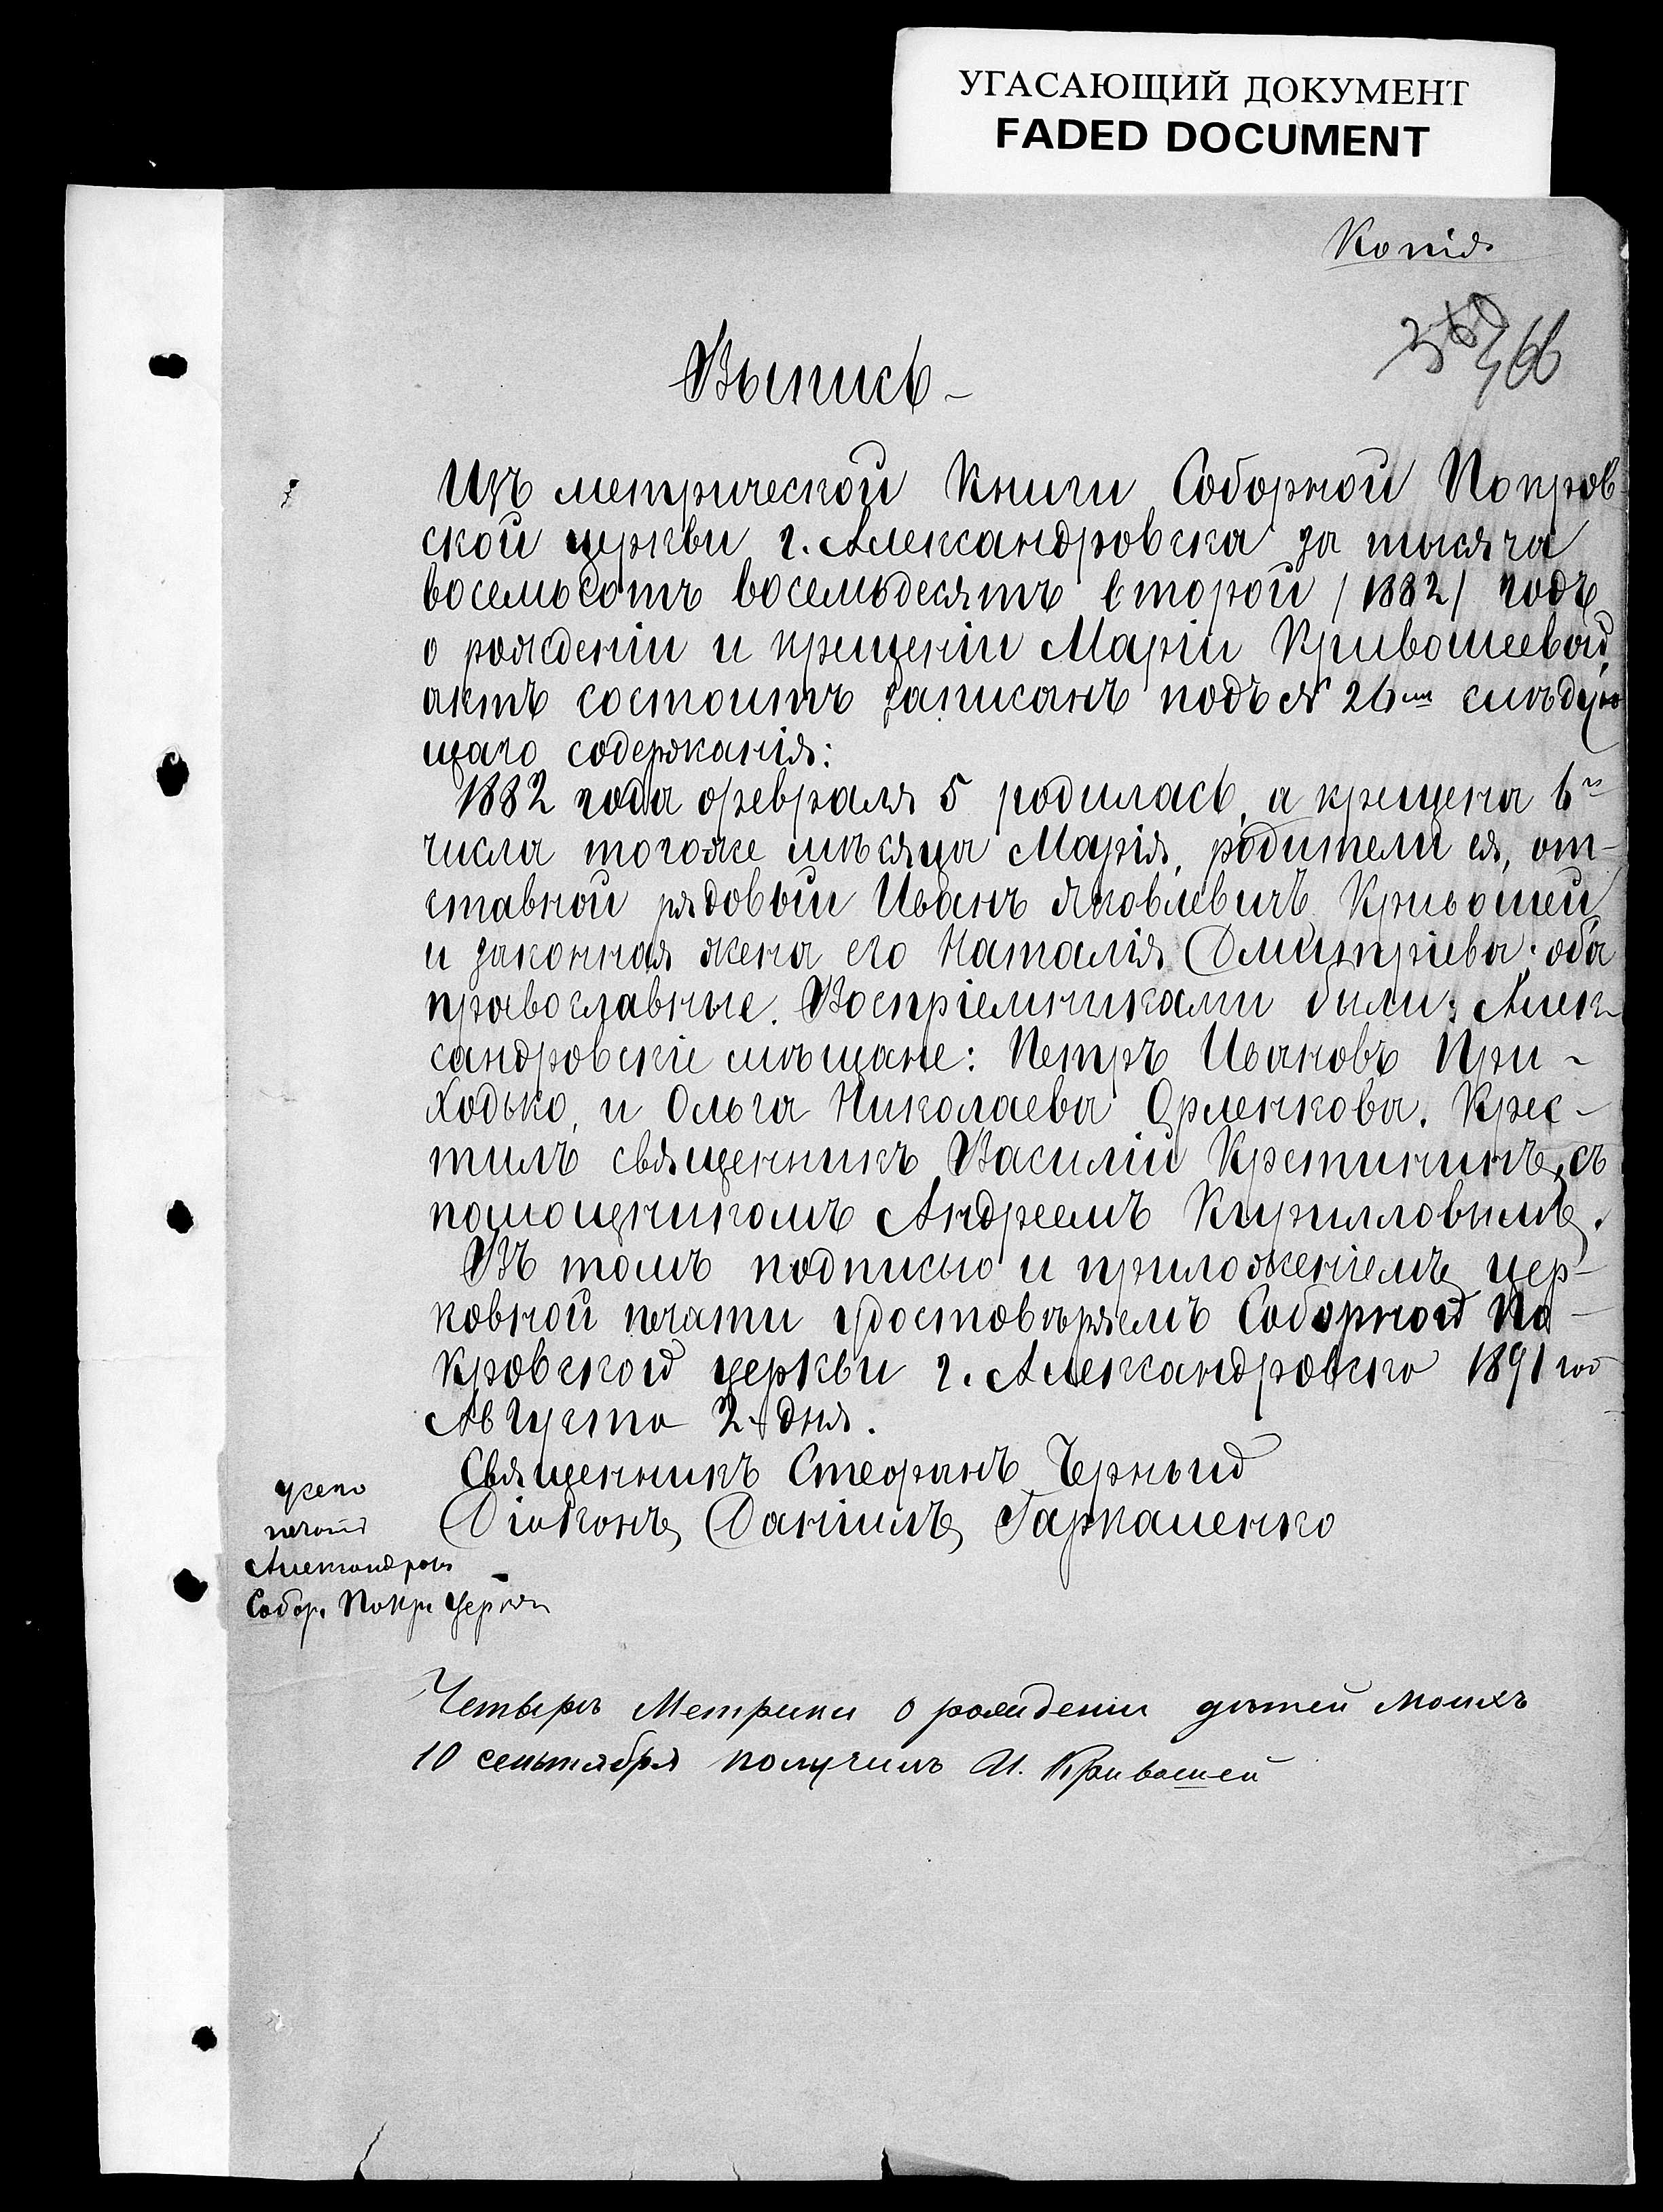 УГАСАЮЩИЙ ДОКУМЕНТ
FADED DOCUMENT
Копія
466
Выпись
Изъ метрической Книги Соборной Покров-
ской церкви г. Александровска за тысяча
восемьсотъ восемьдесятъ второй /1882/ годъ
о рожденіи и крещеніи Маріи Кривошеевой,
актъ состоитъ записанъ подъ № 26мъ слѣдую
щаго содержанія:
1882 года февраля 5 родилась, а крещена 6го
числа тогоже мѣсяца Марія, родители ея, от-
ставной рядовый Иванъ Яковлевичъ Кривошей
и законная жена его Наталія Дмитріева; оба
православные. Воспріемниками были: Алек-
сандровскіе мѣщане: Петръ Ивановъ При-
ходько, и Ольга Николаева Орленкова. Крес-
тилъ священникъ Василій Кретининъ, съ
помощникомъ Андреемъ Кирилловымъ.
Въ томъ подписью и приложеніемъ цер-
ковной печати удостовѣряемъ Соборной По-
кровской церкви г. Александровска 1891 год
Августа 2 дня.
Священникъ Стефанъ Черный
Діаконъ Даніилъ Гаркашенко
печати
Александров
Собор. Покр. Церкви
Четыре Метрики о рожденіи дѣтей моихъ
10 сентября получилъ И. Кривошей